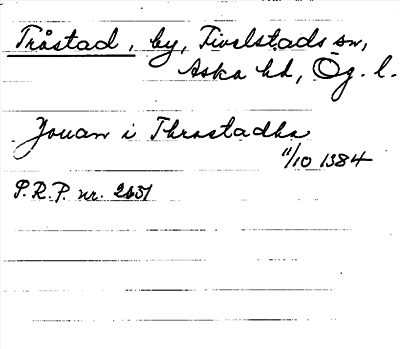 Tråstad, by, Tivelstads sn,
Aska hd, Ög. l.
Jouan i Thrastadha
11/10 1384
P.R.P. nr. 2651